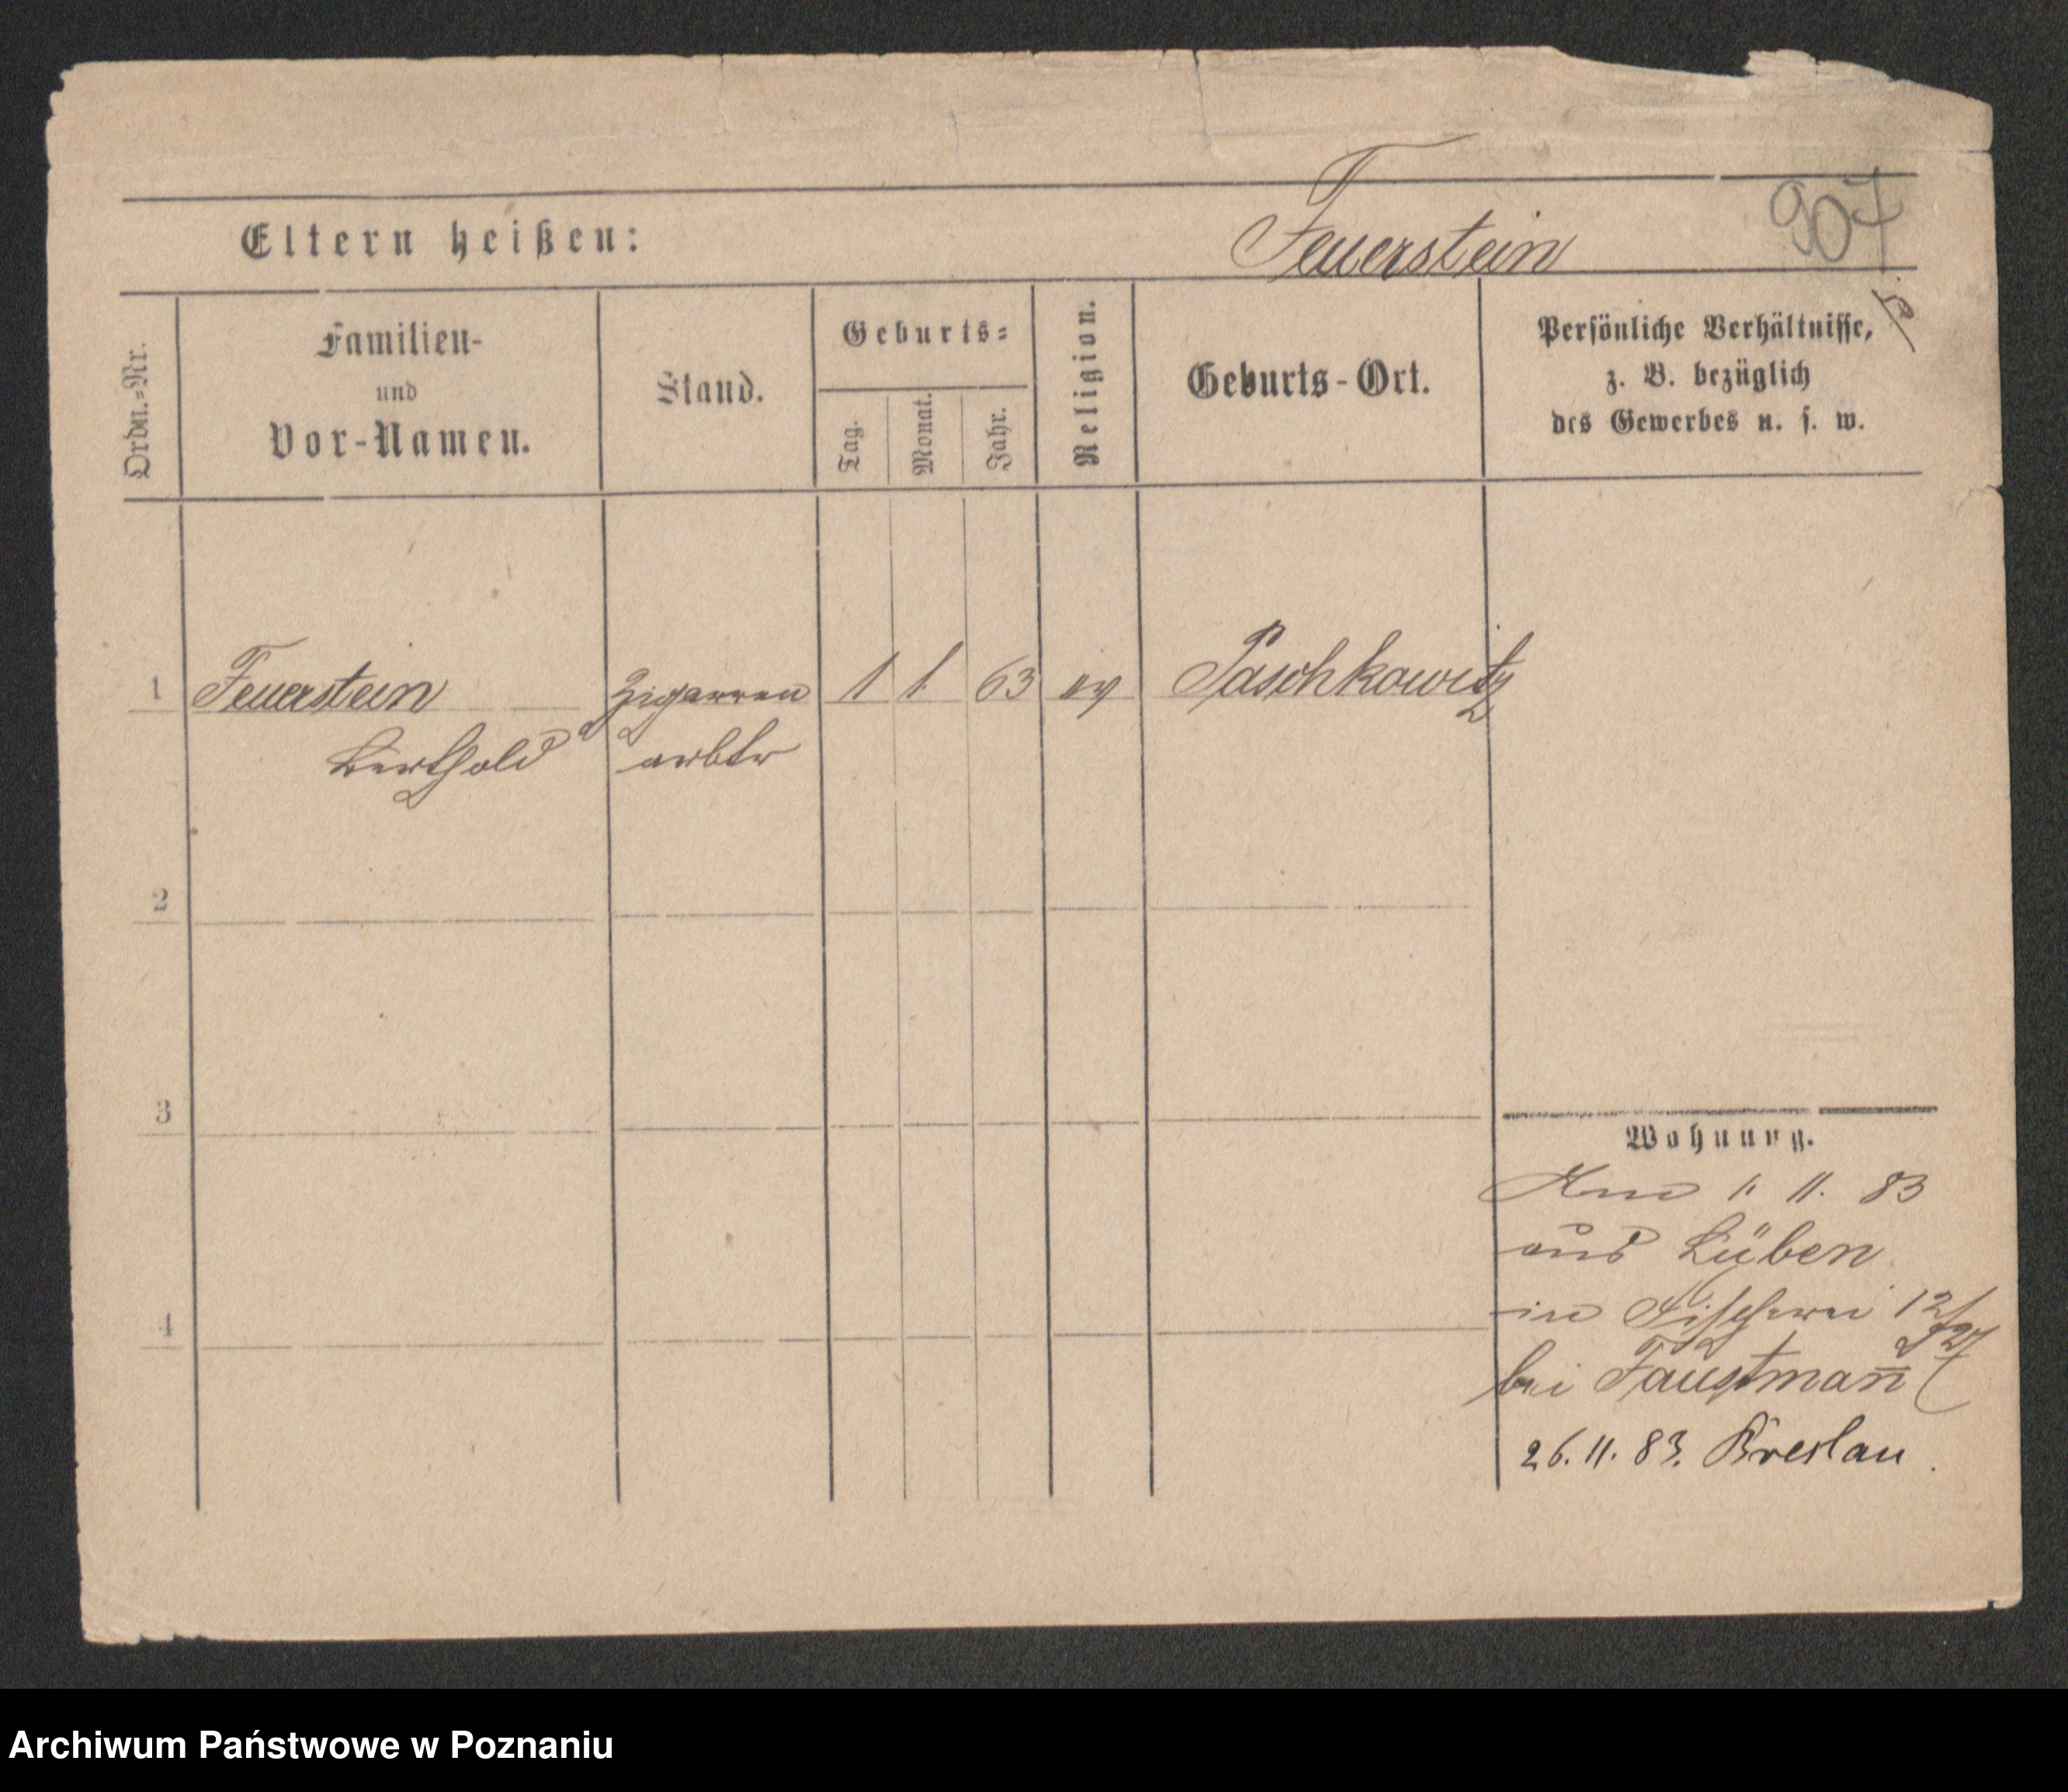 Eltern heißen:
Feuerstein
907
Ordn.=Nr.
Familien-
und
Vor-Namen.
Stand.
Geburts=
Tag.
Monat.
Jahr.
Religion.
Geburts-Ort.
Persönliche Verhältnisse,
z. B. bezüglich
des Gewerbes u. s. w.
1 Feuerstein Zigarren 1 1. 63 ev Paschkowitz
Berthold arbtr
2
3
4
Wohnung.
1. 11. 83
aus Lüben
in Fischerei 12/
27
bei Faustmañ
26. 11. 83. Breslau.
Archiwum Państwowe w Poznaniu